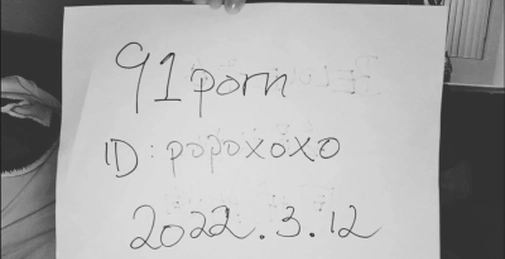 91porn
ID: popoxoxo
2022.3.12